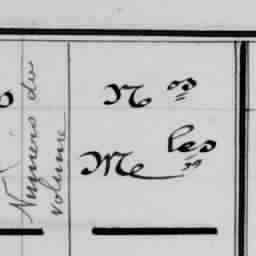 Numéro du
volume
Nos
Melles